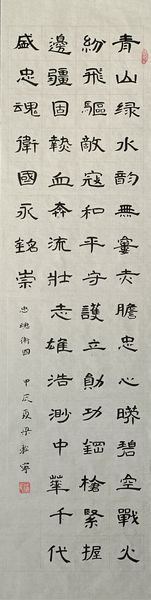 青山绿水韵無窮赤膽忠心暎碧空戰火
紛飛驅敵寇和平守護立勛功鋼槍緊握
邊疆固熱血奔流壯志雄浩渺中華千代
盛忠魂衛國永銘崇
忠魂衛国 甲辰夏